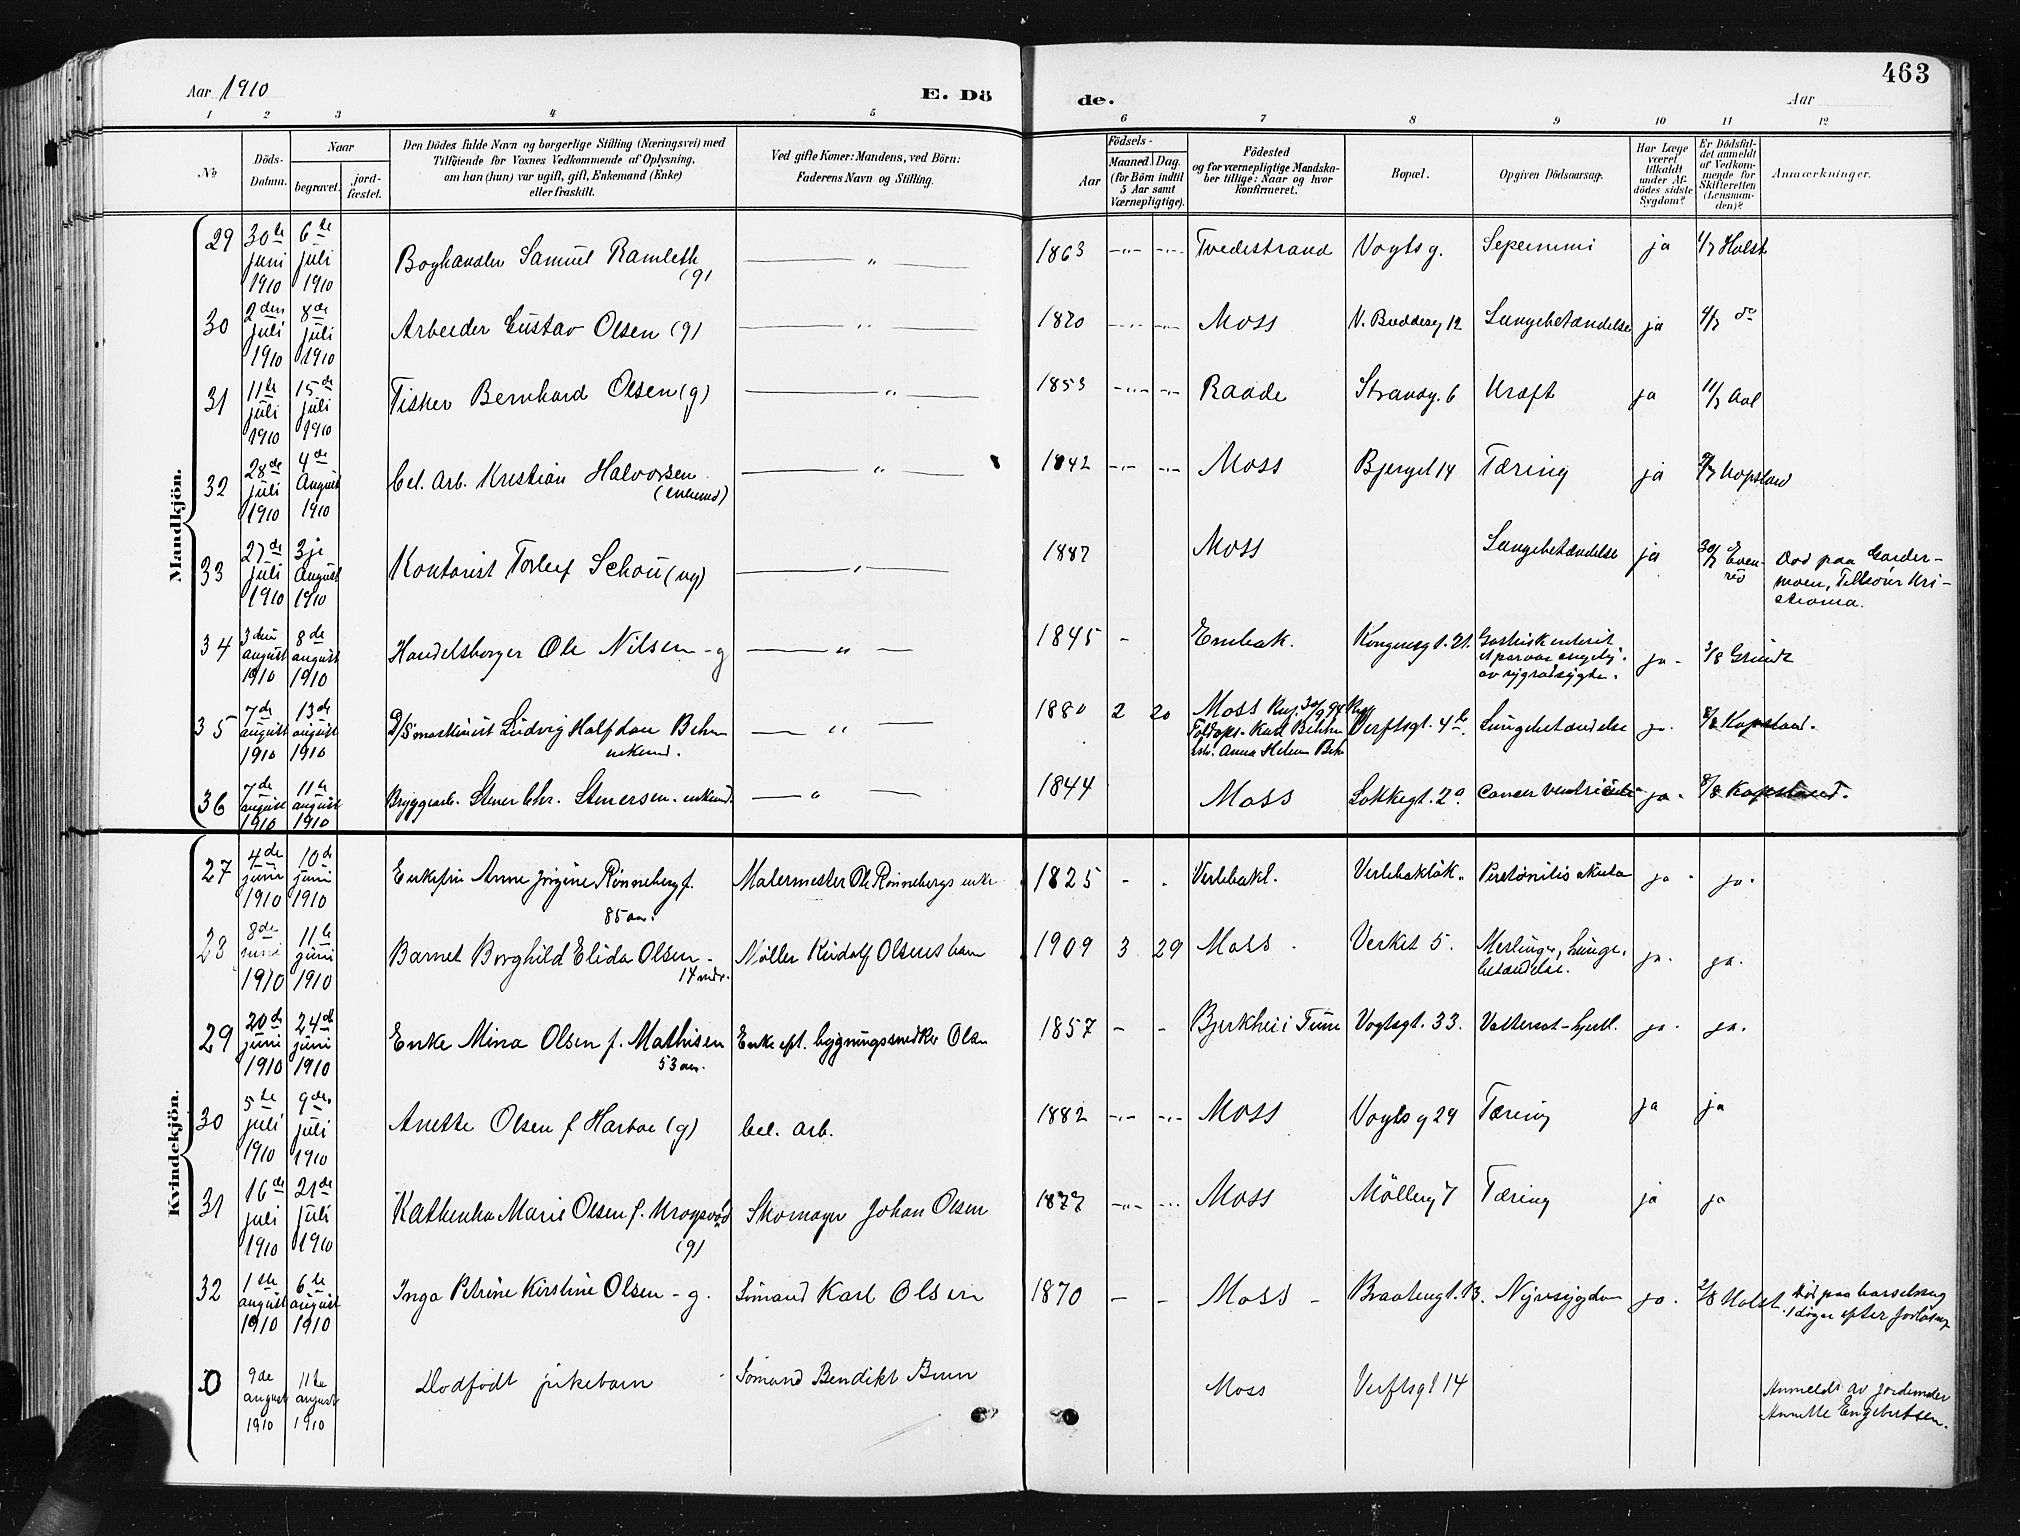 463
Aar 1910
E. Dö
de.
Aar
1 2 3 4 5 6 7 8 9 10 11 12
No
Döds-
Datum.
Naar
begravet.
jord-
fæstet.
Den Dödes fulde Navn og borgerlige Stilling (Næringsvei) med
Tilföiende for Voxnes Vedkommende af Oplysning,
om han (hun) var ugift, gift, Enkemand (Enke)
eller fraskilt.
Ved gifte Koner: Mandens, ved Börn:
Faderens Navn og Stilling.
Födsels-
Aar
Maaned. Dag.
(for Börn indtil
5 Aar samt
Værnepligtige).
Födested
og for værnepligtige Mandska-
ber tillige: Naar og hvor
konfirmeret.
Bopæl.
Opgiven Dödsaarsag.
Har Læge
været
tilkaldt
under Af-
dödes sidste
Sygdom?
Er Dödsfal-
det anmeldt
af Vedkom-
mende for
Skifteretten
(Lensman-
den)?
Anmærkninger.
Mandkjön.
29 30te juni 1910 6te juli 1910 Boghandler Samuel Ramleth (g) 1863 Tvedestrand Vogtsg. ja 1/7 Holst
30 2den juli 1910 8de juli 1910 Arbeider Gustav Olsen (g) 1870 Moss 12 Lungebetændelse ja 4/7 do
31 11te juli 1910 15de juli 1910 Fisker Bernhard Olsen (g) 1853 Raade Strandg. 6 Kræft ja 11/7
32 28de juli 1910 4de August 1910 Cel. Arb. Kristian Halvorsen (enkemd) 1842 Moss Bjerget 14 Tæring ja Kopstad
33 27de juli 1910 3je August 1910 Kontorist Torleif Schou (ug) 1887 Moss Lungebetændelse ja 30/7 Død paa Garder-
moen, Kri-
stiania.
34 3die august 1910 8de august 1910 Handelsborger Ole Nilsen - g 1845 - Enebak. Kongensgt. 21. ja. 3/8
35 7de august 1910 13de august 1910 D/S maskinist Ludvig Halfdan Behn enkemd. 1880 2 20 Moss Verftsgt. 4b. Lungebetændelse ja. 8/8 Kopstad.
36 7de august 1910 11te august 1910 Bryggearb. Stener Chr. Stenersen. enkemd. 1844 Moss Lokkegt. 2a. cancer ventriculi ja. 8/8 Kopstad.
Kvindekjön.
27 4de juni 1910 10de juni 1910 Enkefru Anne Jørgine Rønneberg f. 85 aar. Malermester Ole Rønnebergs enke 1825 - . Verlebakl. Verlebakløk. Peritonitis akuta ja. ja.
28 8de juni 1910 11te juni 1910 Barnet Borghild Elida Olsen. 14 mdr. Møller Rudolf Olsens barn 1909 3 29 Moss Verket 5. Meslinger, Lunge-
betændelse. ja. ja.
29 20de juni 1910 24de juni 1910 Enke Mina Olsen f. Mathisen 53 aar. Enke eft. bygningssnedker Olsen 1857 - - Bjerkhei i Tune Vogtsgt. 33. Vattersot - hjertl. ja. ja.
30 5te juli 1910 9de juli 1910 Anette Olsen f Harboe (g) Cel. arb. 1882 Moss Vogtsg 29 Tæring ja ja
31 16de juli 1910 21de juli 1910 Kathinka Marie Olsen f. (g) Skomager Johan Olsen 1877 Moss Mölleg 7 Tæring ja ja
32 1ste august 1910 6te august 1910 Inga Petrine Kirstine Olsen - g. Sømand Karl Olsen 1870 - - Moss - Nyresygdom ja. 2/8 Holst. Død paa barselseng
1 døgn efter forløsning
0 9de august 1910 11te august 1910 Dødfødt pikebarn Sømand Bendikt Bruun Moss Verftsgt 14 Anmeldt av jordemoder
Annette Engebretsen.